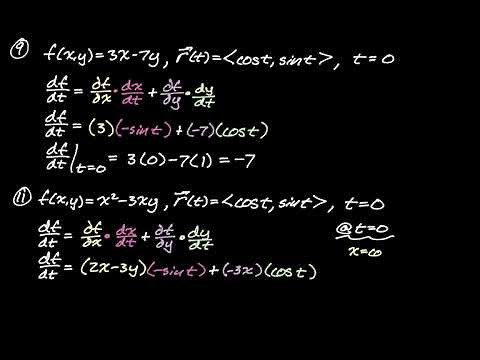 ⑨ f(x,y)=3x-7y, r⃗(t)=<cost, sint>, t=0
df/dt = ∂f/∂x · dx/dt + ∂f/∂y · dy/dt
df/dt = (3)(-sint)+(-7)(cost)
df/dt|t=0 = 3(0)-7(1)=-7
⑪ f(x,y)=x²-3xy, r⃗(t)=<cost, sint>, t=0
df/dt = ∂f/∂x · dx/dt + ∂f/∂y · dy/dt
@t=0
x=co
df/dt = (2x-3y)(-sint)+(-3x)(cost)